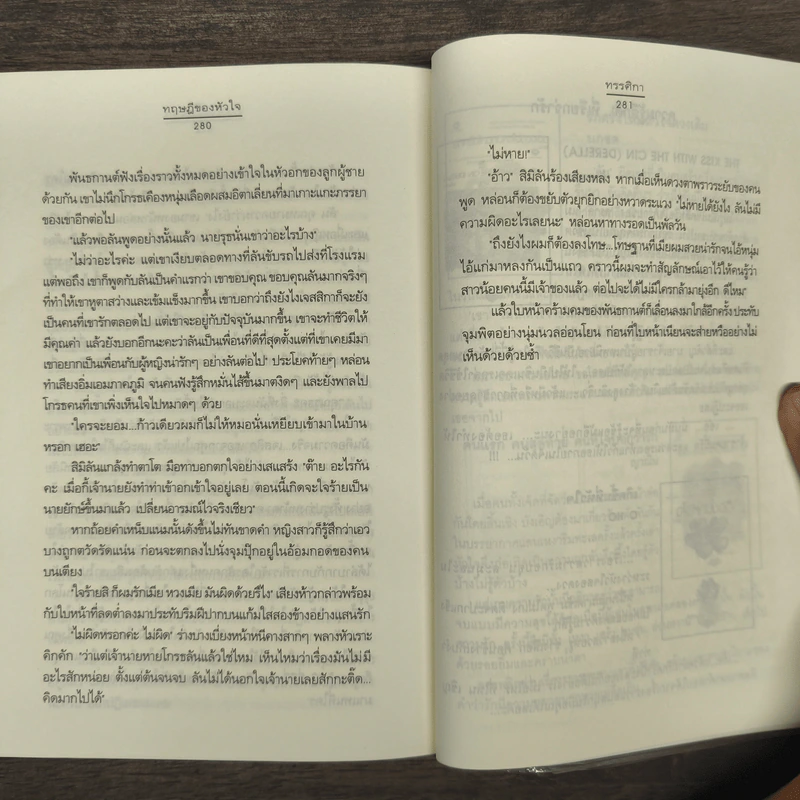 ทฤษฎีของหัวใจ
280
พันธกานต์ฟังเรื่องราวทั้งหมดอย่างเข้าใจในหัวอกของลูกผู้ชาย
ด้วยกัน เขาไม่นึกโกรธเคืองหนุ่มเลือดผสมอิตาเลี่ยนที่มาเกาะแกะภรรยา
ของเขาอีกต่อไป
"แล้วพอลันพูดอย่างนั้นแล้ว นายรุธนั่นเขาว่าอะไรบ้าง"
"ไม่ว่าอะไรค่ะ แต่เขาเงียบตลอดทางที่ลันขับรถไปส่งที่โรงแรม
แต่พอถึง เขาก็พูดกับลันเป็นคำแรกว่า เขาขอบคุณ ขอบคุณลันมากจริงๆ
ที่ทำให้เขาหูตาสว่างและเข้มแข็งมากขึ้น เขาบอกว่าถึงยังไงเจสสิกาก็จะยัง
เป็นคนที่เขารักตลอดไป แต่เขาจะอยู่กับปัจจุบันมากขึ้น เขาจะทำชีวิตให้
มีคุณค่า แล้วยังบอกอีกนะคะว่าลันเป็นเพื่อนที่ดีที่สุดตั้งแต่ที่เขาเคยมีมา
เขาอยากเป็นเพื่อนกับผู้หญิงน่ารักๆ อย่างลันต่อไป" ประโยคท้ายๆ หล่อน
ทำเสียงอิ่มเอมภาคภูมิ จนคนฟังรู้สึกหมั่นไส้ขึ้นมาตงิดๆ และยังพาลไป
โกรธคนที่เขาเพิ่งเห็นใจไปหมาดๆ ด้วย
"ใครจะยอม...ก้าวเดียวผมก็ไม่ให้หมอนั่นเหยียบเข้ามาในบ้าน
หรอก เฮอะ"
สิมิลันแกล้งทำตาโต มือทาบอกตกใจอย่างเสแสร้ง "ต๊าย อะไรกัน
คะ เมื่อกี้เจ้านายยังทำท่าเข้าอกเข้าใจอยู่เลย ตอนนี้เกิดจะใจร้ายเป็น
นายยักษ์ขึ้นมาแล้ว เปลี่ยนอารมณ์ไวจริงเชียว"
หากถ้อยคำเหน็บแนมนั้นดังขึ้นไม่ทันขาดคำ หญิงสาวก็รู้สึกว่าเอว
บางถูกตวัดรัดแน่น ก่อนจะตกลงไปนั่งจุมปุ๊กอยู่ในอ้อมกอดของคน
บนเตียง
"ใจร้ายสิ ก็ผมรักเมีย หวงเมีย มันผิดด้วยรึไง" เสียงห้าวกล่าวพร้อม
กับใบหน้าที่ลดต่ำลงมาประทับริมฝีปากบนแก้มใสสองข้างอย่างแสนรัก
"ไม่ผิดหรอกค่ะ ไม่ผิด" ร่างบางเบี่ยงหน้าหนีคางสากๆ พลางหัวเราะ
คิกคัก "ว่าแต่เจ้านายหายโกรธลันแล้วใช่ไหม เห็นไหมว่าเรื่องมันไม่มี
อะไรสักหน่อย ตั้งแต่ต้นจนจบ ลันไม่ได้นอกใจเจ้านายเลยสักกะติ๊ด...
คิดมากไปได้"
ทรรศิกา
281
"ไม่หาย!"
"อ้าว" สิมิลันร้องเสียงหลง หากเมื่อเห็นดวงตาพราวระยับของคน
พูด หล่อนก็ต้องขยับตัวยุกยิกอย่างหวาดระแวง "ไม่หายได้ยังไง ลันไม่มี
ความผิดอะไรเลยนะ" หล่อนหาทางรอดเป็นพัลวัน
"ถึงยังไงผมก็ต้องลงโทษ...โทษฐานที่เมียผมสวยน่ารักจนไอ้หนุ่ม
ไอ้แก่มาหลงกันเป็นแถว คราวนี้ผมจะทำสัญลักษณ์เอาไว้ให้คนรู้ว่า
สาวน้อยคนนี้มีเจ้าของแล้ว ต่อไปจะได้ไม่มีใครกล้ามายุ่งอีก ดีไหม"
แล้วใบหน้าคร้ามคมของพันธกานต์ก็เลื่อนลงมาใกล้อีกครั้ง ประทับ
จุมพิตอย่างนุ่มนวลอ่อนโยน ก่อนที่ใบหน้าเนียนจะส่ายหรืออย่างไม่
เห็นด้วยด้วยซ้ำ